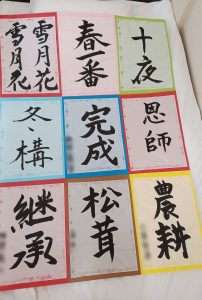 十夜
春一番
雪月花
雪月花
恩師
完成
冬構
農耕
松茸
継承